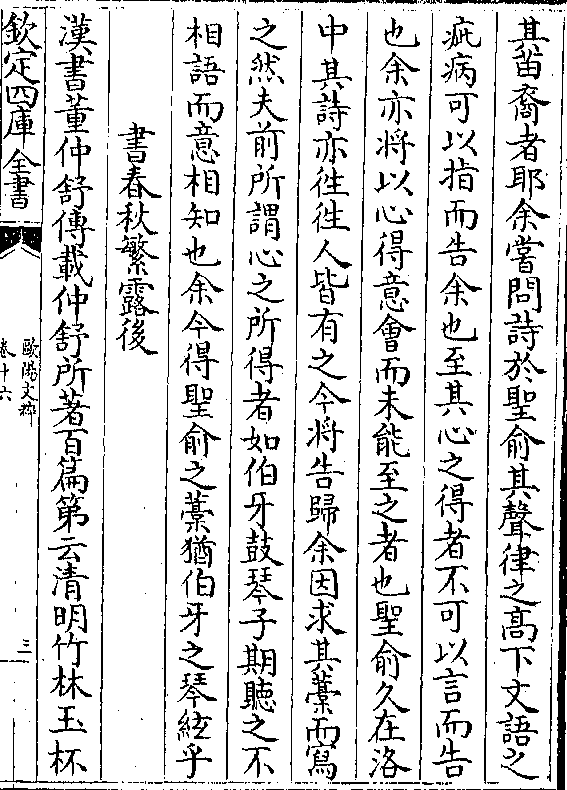 其苗裔者耶余嘗問詩於聖俞其聲律之髙下文語之
疵病可以指而告余也至其心之得者不可以言而告
也余亦將以心得意會而未能至之者也聖俞久在洛
中其詩亦徃徃人皆有之今將告歸余因求其藳而寫
之然夫前所謂心之所得者如伯牙鼓琴子期聽之不
相語而意相知也余今得聖俞之藳猶伯牙之琴絃乎
書春秋繁露後
漢書董仲舒傳載仲舒所著百篇第云清明竹林玉杯
欽定四庫全書
歐陽文粹
卷十六
三